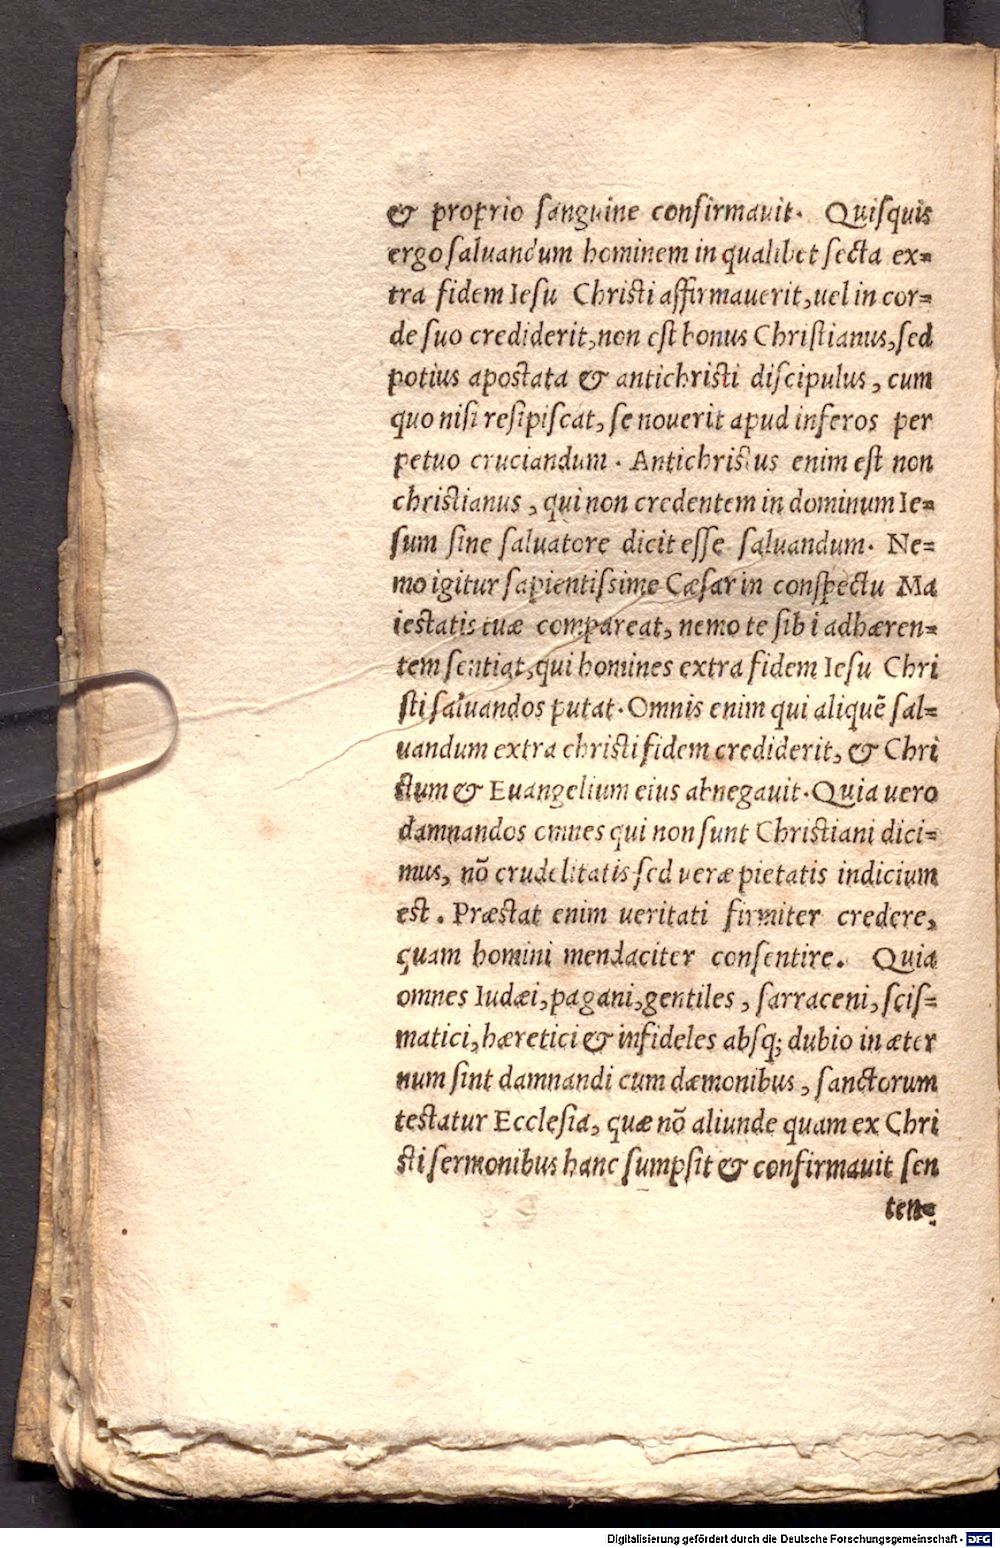 & proprio sanguine confirmauit. Quiſquis
ergo ſaluandum hominem in qualibet ſecta ex=
tra fidem Ieſu Chriſti affirmauerit, uel in cor=
de ſuo crediderit, non eſt bonus Chriſtianus, ſed
potius apoſtata & antichriſti diſcipulus, cum
quo niſi reſipiſcat, ſe nouerit apud inferos per
petuo cruciandum. Antichriſtus enim eſt non
chriſtianus, qui non credentem in dominum Ie=
ſum ſine ſaluatore dicit eſſe ſaluandum. Ne=
mo igitur ſapientiſsime Cæſar in conſpectu Ma
ieſtatis tuæ compareat, nemo te ſibi adhæren=
tem ſentiat, qui homines extra fidem Ieſu Chri
ſti ſaluandos putat. Omnis enim qui aliquē ſal=
uandum extra chriſti fidem crediderit, & Chri
ſtum & Euangelium eius abnegauit. Quia uero
damnandos omnes qui non ſunt Chriſtiani dici=
mus, nō crudelitatis ſed veræ pietatis indicium
eſt. Præſtat enim ueritati firmiter credere,
quam homini mendaciter conſentire. Quia
omnes Iudæi, pagani, gentiles, ſarraceni, ſciſ=
matici, hæretici & infideles abſq; dubio in æter
num ſint damnandi cum dæmonibus, ſanctorum
teſtatur Eccleſia, quæ nō aliunde quam ex Chri
ſti ſermonibus hanc ſumpſit & confirmauit ſen
ten=
Digitalisierung gefördert durch die Deutsche Forschungsgemeinschaft - DFG